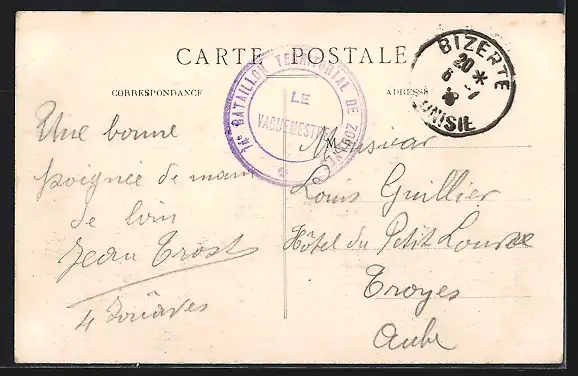 CARTE POSTALE
CORRESPONDANCE
ADRESSE
14e BATAILLON TERRITORIAL DE ZOUAVES
LE
VAGUEMESTRE
BIZERTE
20 *
6 -1
TUNISIE
Une bonne
poignée de main
de loin
Jean Trost
4 Zouâves
M
Monsieur
Louis Guillier
Hôtel du Petit Louvre
Troyes
Aube